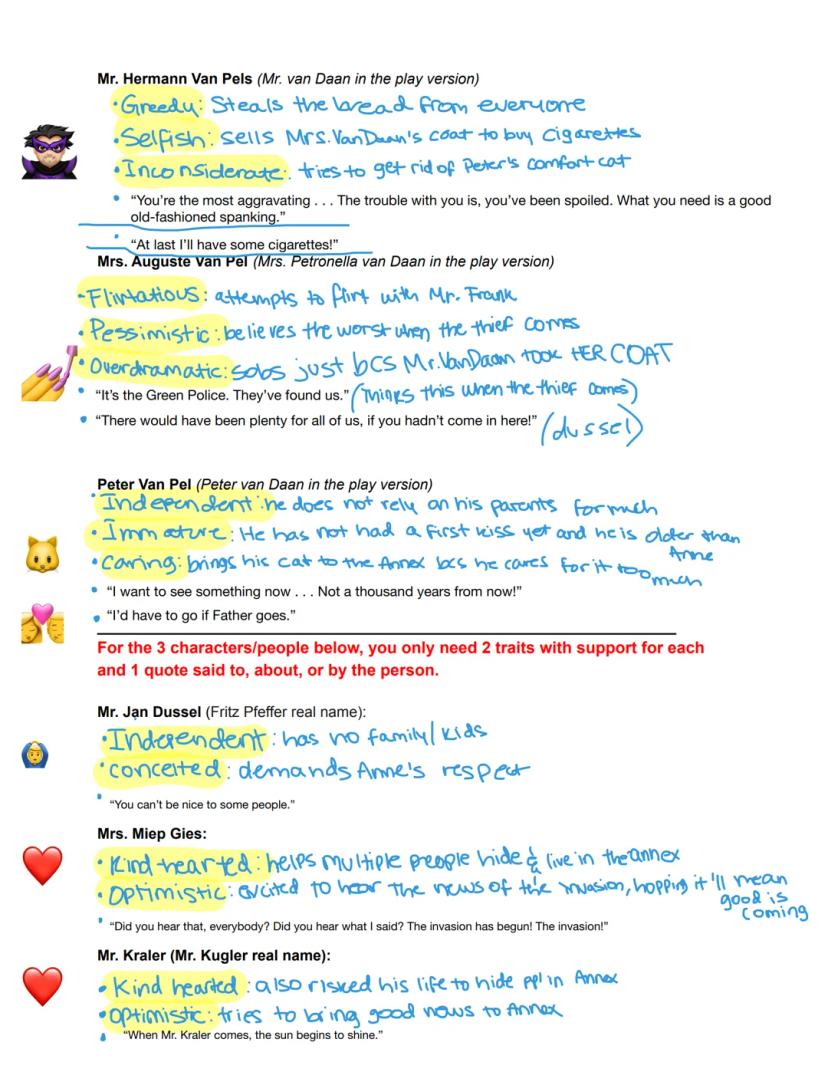 Mr. Hermann Van Pels (Mr. van Daan in the play version)
• Greedy: Steals the bread from everyone
• Selfish: sells Mrs. VanDaan's coat to buy cigarettes
• Inconsiderate: tries to get rid of Peter's comfort cat
• “You're the most aggravating . . . The trouble with you is, you've been spoiled. What you need is a good
old-fashioned spanking.”
• “At last I'll have some cigarettes!”
Mrs. Auguste Van Pel (Mrs. Petronella van Daan in the play version)
• Flirtatious: attempts to flirt with Mr. Frank
• Pessimistic: believes the worst when the thief comes
• Overdramatic: sobs just bcs Mr. VanDaan TOOK HER COAT
• “It's the Green Police. They've found us.” (Thinks this when the thief comes)
• “There would have been plenty for all of us, if you hadn't come in here!” (dussel)
Peter Van Pel (Peter van Daan in the play version)
• Independent: he does not rely on his parents for much
• Immature: He has not had a first kiss yet and he is older than
Anne
• Caring: brings his cat to the Annex bcs he cares for it too
much
• “I want to see something now . . . Not a thousand years from now!”
• “I'd have to go if Father goes.”
For the 3 characters/people below, you only need 2 traits with support for each
and 1 quote said to, about, or by the person.
Mr. Jan Dussel (Fritz Pfeffer real name):
• Independent: has no family/kids
• conceited: demands Anne's respect
• “You can't be nice to some people.”
Mrs. Miep Gies:
• Kind hearted: helps multiple people hide & live in the annex
• Optimistic: excited to hear the news of the invasion, hopping it'll mean
good is
coming
• “Did you hear that, everybody? Did you hear what I said? The invasion has begun! The invasion!”
Mr. Kraler (Mr. Kugler real name):
• Kind hearted: also risked his life to hide ppl in Annex
• optimistic: tries to bring good news to Annex
• “When Mr. Kraler comes, the sun begins to shine.”